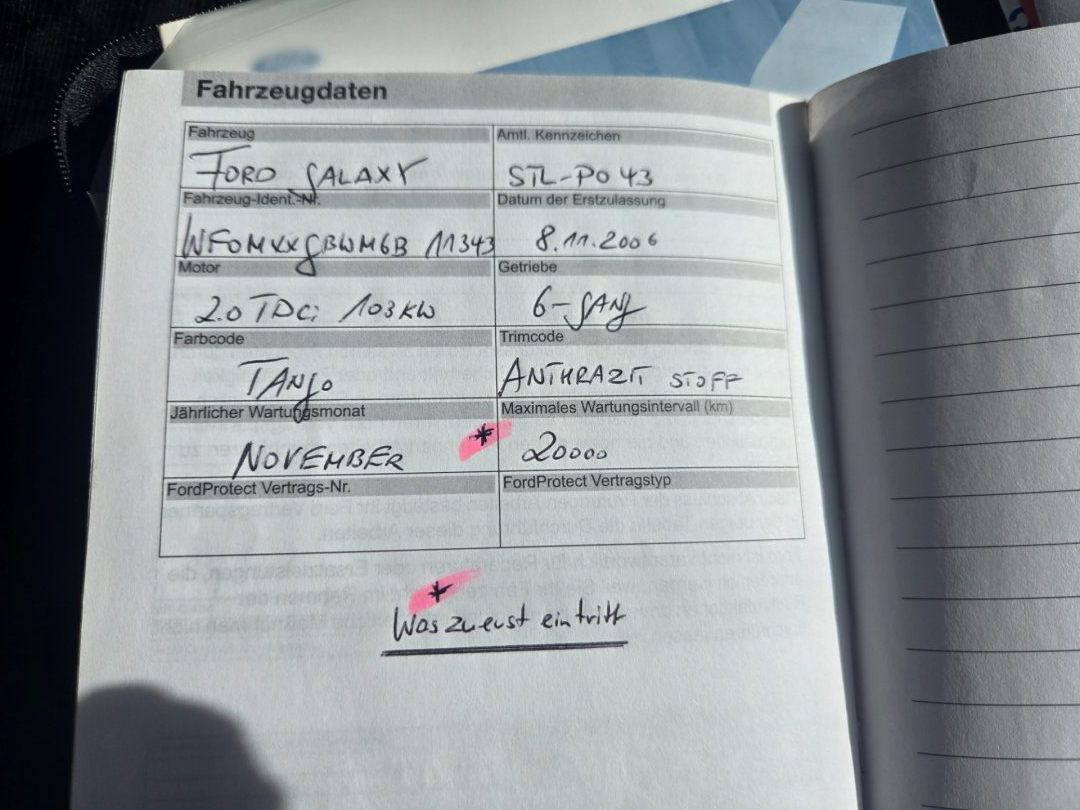 Fahrzeugdaten
Fahrzeug
Amtl. Kennzeichen
FORD GALAXY
STL-PO 43
Fahrzeug-Ident.-Nr.
Datum der Erstzulassung
WF0MXXGBWM6B 11343
8.11.2006
Motor
Getriebe
2.0 TDCi 103 KW
6-GANG
Farbcode
Trimcode
TANGO
ANTHRAZIT STOFF
Jährlicher Wartungsmonat
Maximales Wartungsintervall (km)
NOVEMBER
* 20000
FordProtect Vertrags-Nr.
FordProtect Vertragstyp
*
Was zuerst eintritt